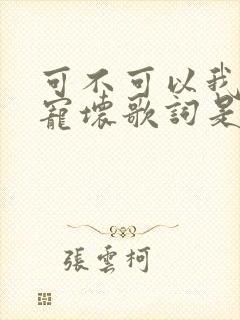 可不可以我
寵壞歌詞是
張雲柯